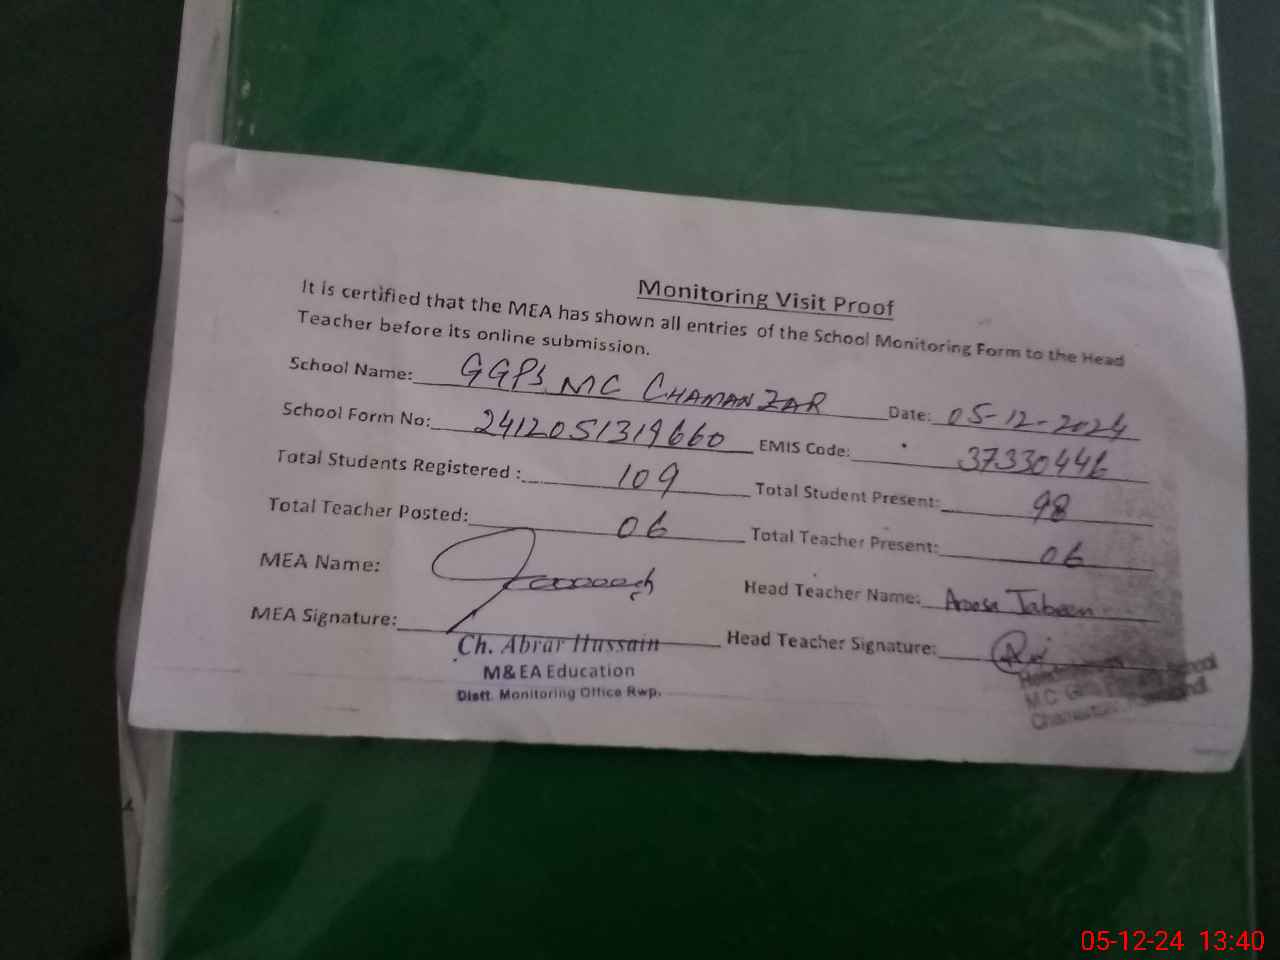 Monitoring Visit Proof
It is certified that the MEA has shown all entries of the School Monitoring Form to the Head
Teacher before its online submission.
School Name: GGPS MC CHAMANZAR Date: 05-12-2024
School Form No: 2412051319660 EMIS Code: 37330446
Total Students Registered : 109 Total Student Present: 98
Total Teacher Posted: 06 Total Teacher Present: 06
MEA Name: Head Teacher Name: Aroosa Jabeen
MEA Signature: Head Teacher Signature:
Ch. Abrar Hussain
M&EA Education
Distt. Monitoring Office Rwp.
M.C. School
05-12-24 13:40